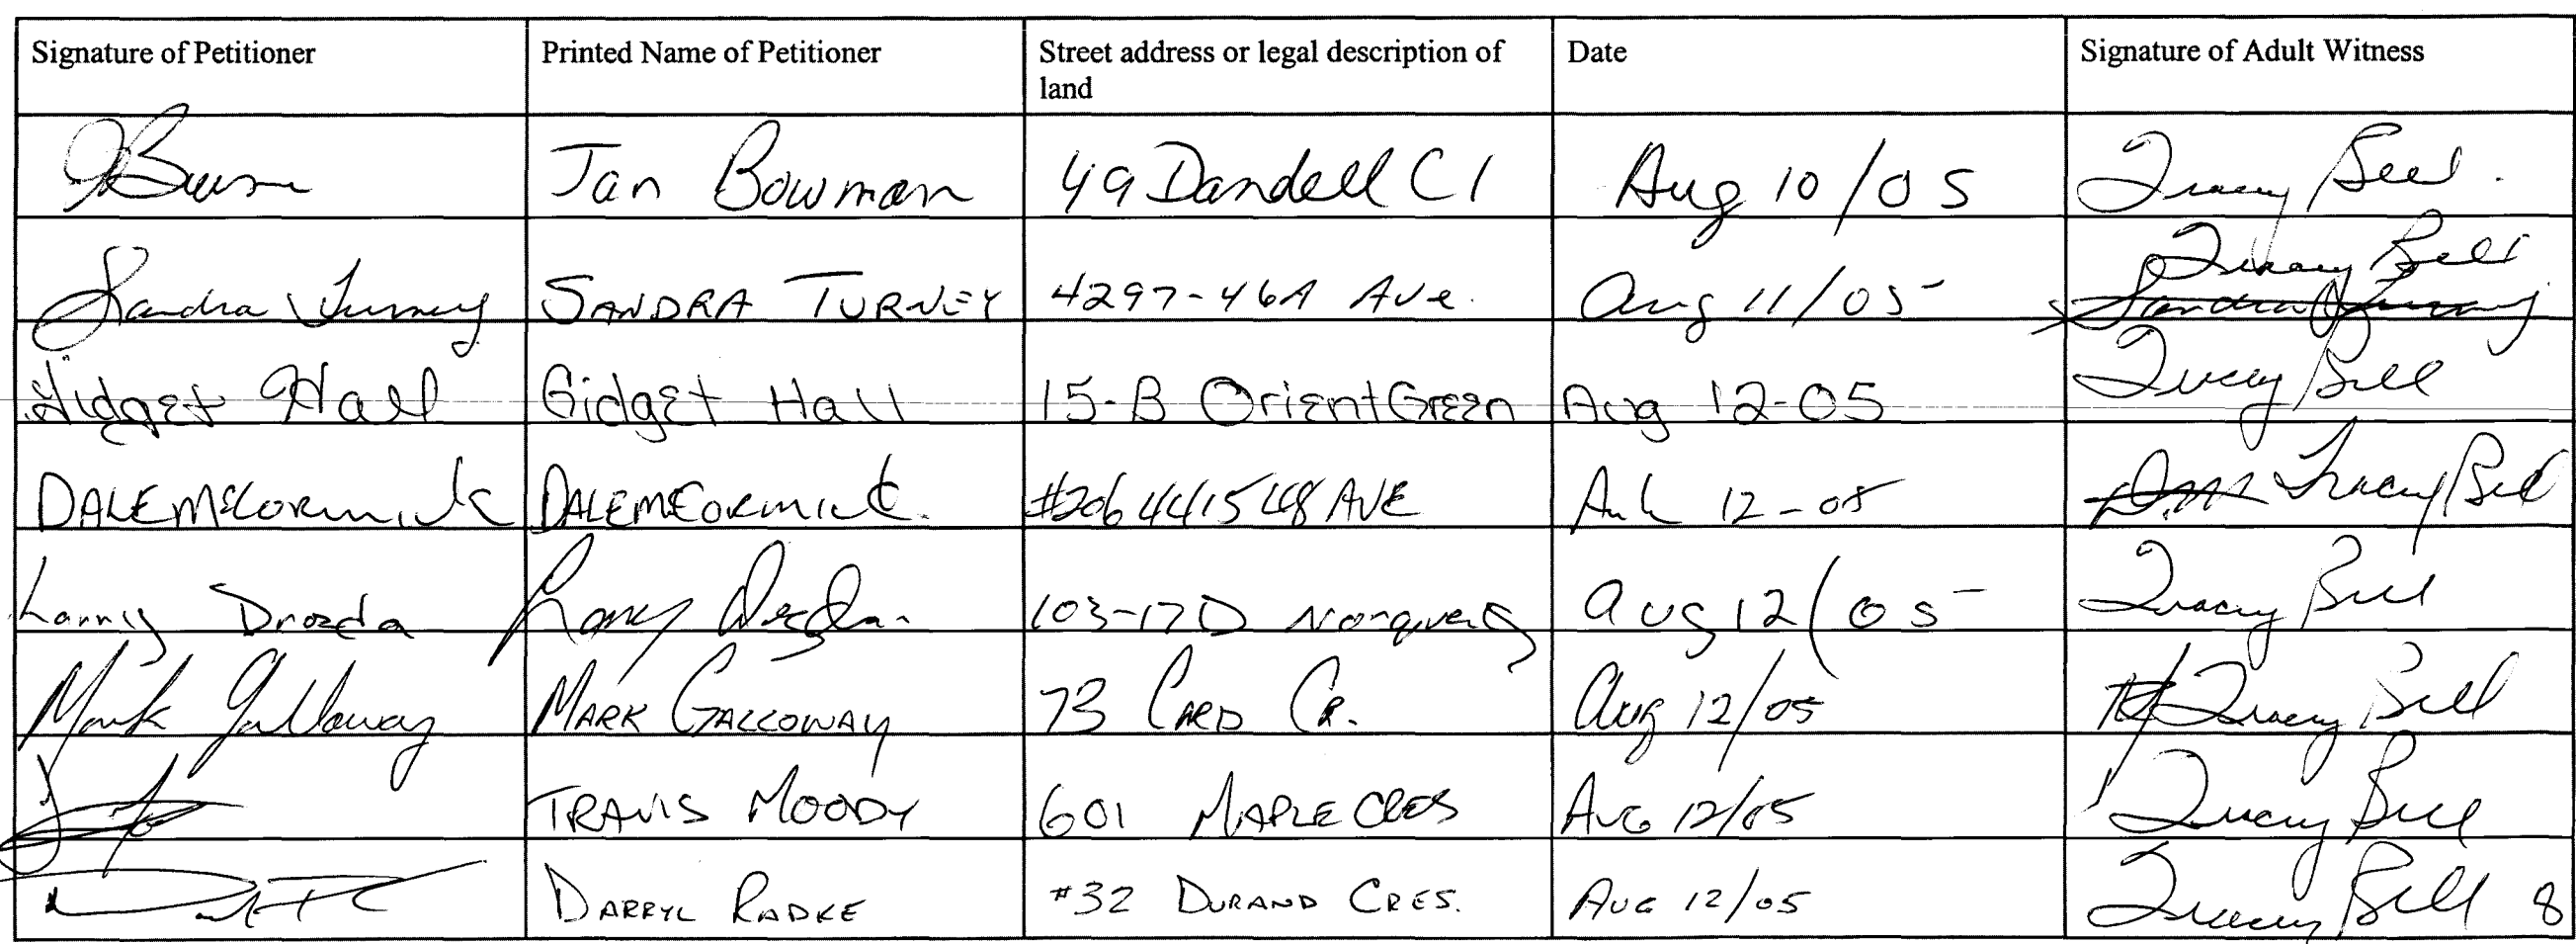 Signature of Petitioner Printed Name of Petitioner Street address or legal description of land Date Signature of Adult Witness
Jan Bowman 49 Dandell Cl Aug 10/05 Tracy Bell.
Sandra Turney SANDRA TURNEY 4297-46A Ave. Aug 11/05 Tracy Bell Sandra Turney
Gidget Hall Gidget Hall 15-B Orient Green Aug 12-05 Tracy Bell
DALE McCORMICK DALE McCORMICK #206 4415 48 AVE 12-05 Tracy Bell
Lanny Drozda Lanny Drozda 103-17D Aug 12/05 Tracy Bell
Mark Galloway MARK GALLOWAY 73 CARD CR. Aug 12/05 Tracy Bell
TRAVIS MOODY 601 MAPLE CRES AUG 12/05 Tracy Bell
DARRYL RADKE #32 DURAND CRES. AUG 12/05 Tracy Bell 8